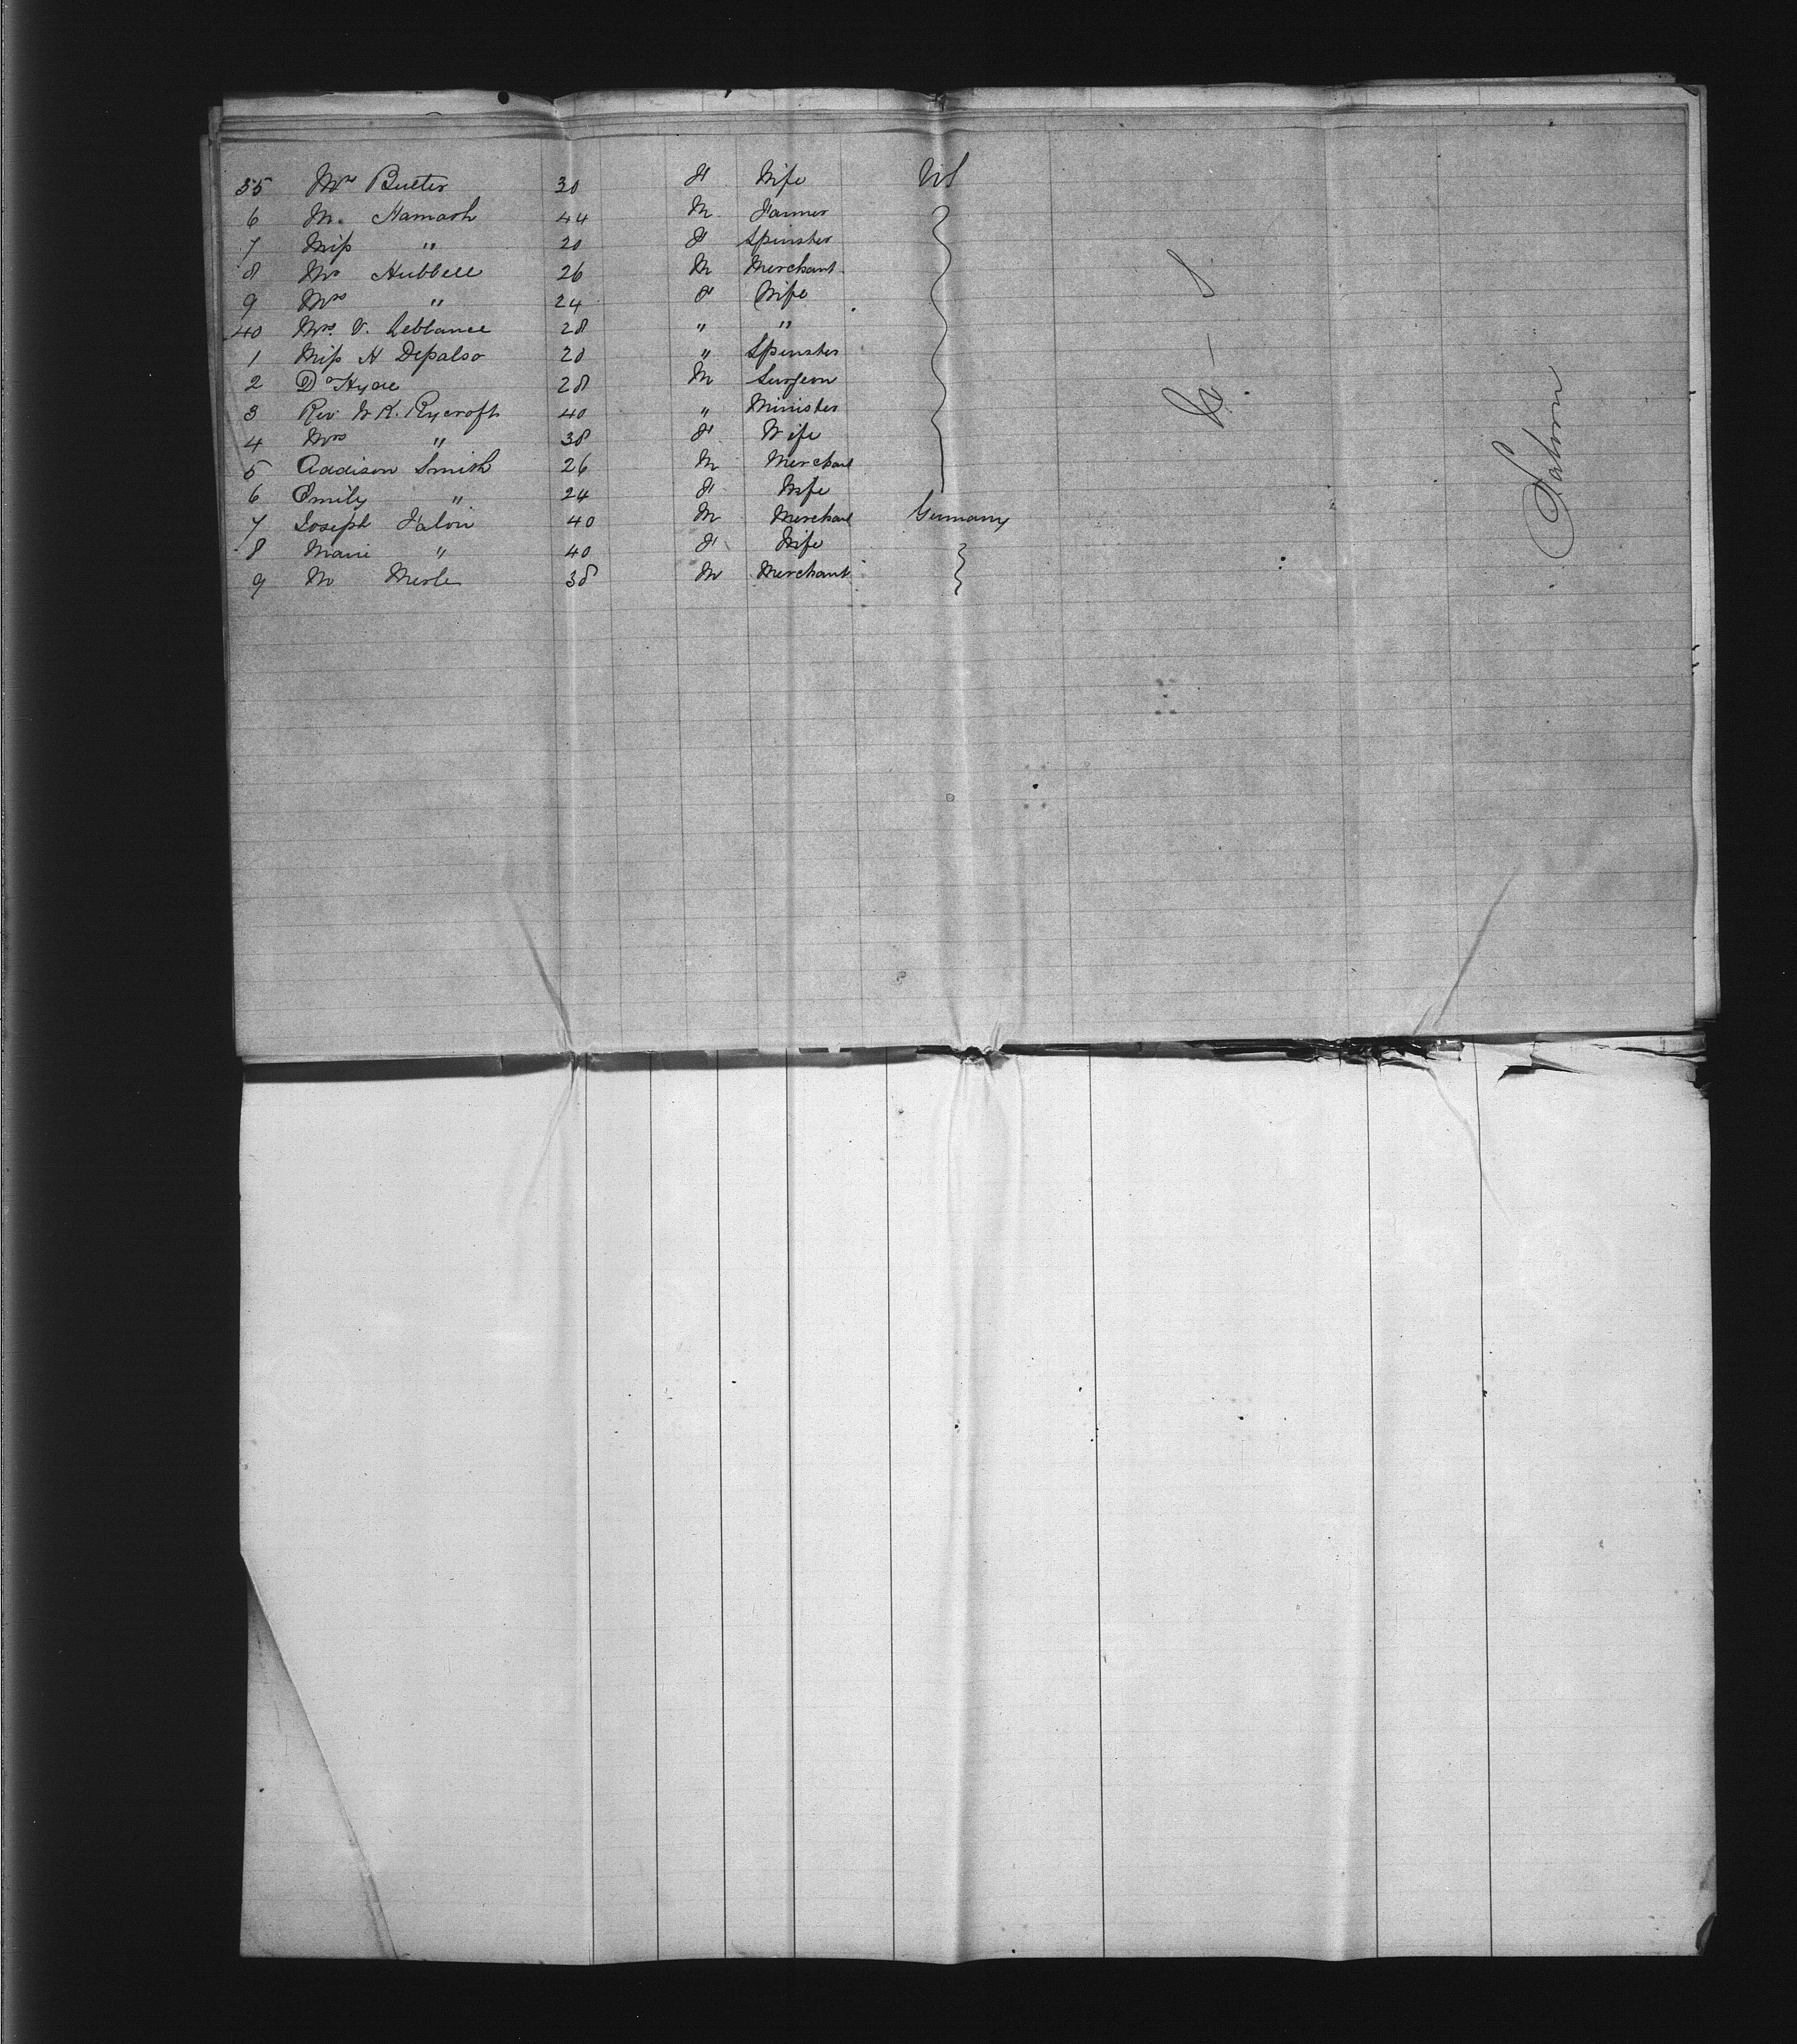 35 Mrs Bueter 30 F Wife US
6 M. Hamash 44 M Farmer
7 Miss " 20 F Spinster
8 Mr Hubbell 26 M Merchant
9 Mrs " 24 F Wife
40 Mrs V. Leblance 28 " "
1 Miss H Depalso 20 " Spinster
2 Dr Hyde 28 M Surgeon
3 Rev. W K. Rycroft 40 " Minister
4 Mrs " 38 F Wife
5 Addison Smith 26 M Merchant
6 Emily " 24 F Wife
7 Joseph Falvin 40 M Merchant Germany
8 Marie " 40 F Wife
9 M Merle 38 M Merchant